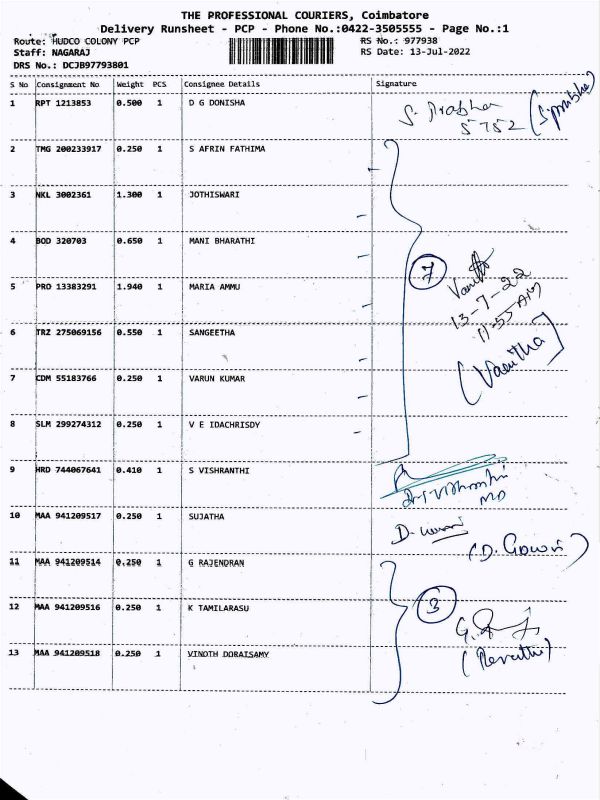 THE PROFESSIONAL COURIERS, Coimbatore
Delivery Runsheet - PCP - Phone No.:0422-3505555 - Page No.:1
Route: HUDCO COLONY PCP RS No.: 977938
Staff: NAGARAJ RS Date: 13-Jul-2022
DRS No.: DCJB97793801
S No Consignment No Weight PCS Consignee Details Signature
1 RPT 1213853 0.500 1 D G DONISHA S. Prabha (S.prabha)
5752
2 TMG 200233917 0.250 1 S AFRIN FATHIMA
3 NKL 3002361 1.300 1 JOTHISWARI
4 BOD 320703 0.650 1 MANI BHARATHI
7 Vanitha
5 PRO 13383291 1.940 1 MARIA AMMU 13-7-22
11-55 AM
6 TRZ 275069156 0.550 1 SANGEETHA
(Vanitha)
7 CDM 55183766 0.250 1 VARUN KUMAR
8 SLM 299274312 0.250 1 V E IDACHRISDY
9 HRD 744067641 0.410 1 S VISHRANTHI
Dr. S Vishranthi
MD
10 MAA 941209517 0.250 1 SUJATHA D. Gowri
(D. Gowri)
11 MAA 941209514 0.250 1 G RAJENDRAN
12 MAA 941209516 0.250 1 K TAMILARASU 3
13 MAA 941209518 0.250 1 VINOTH DORAISAMY (Revathi)